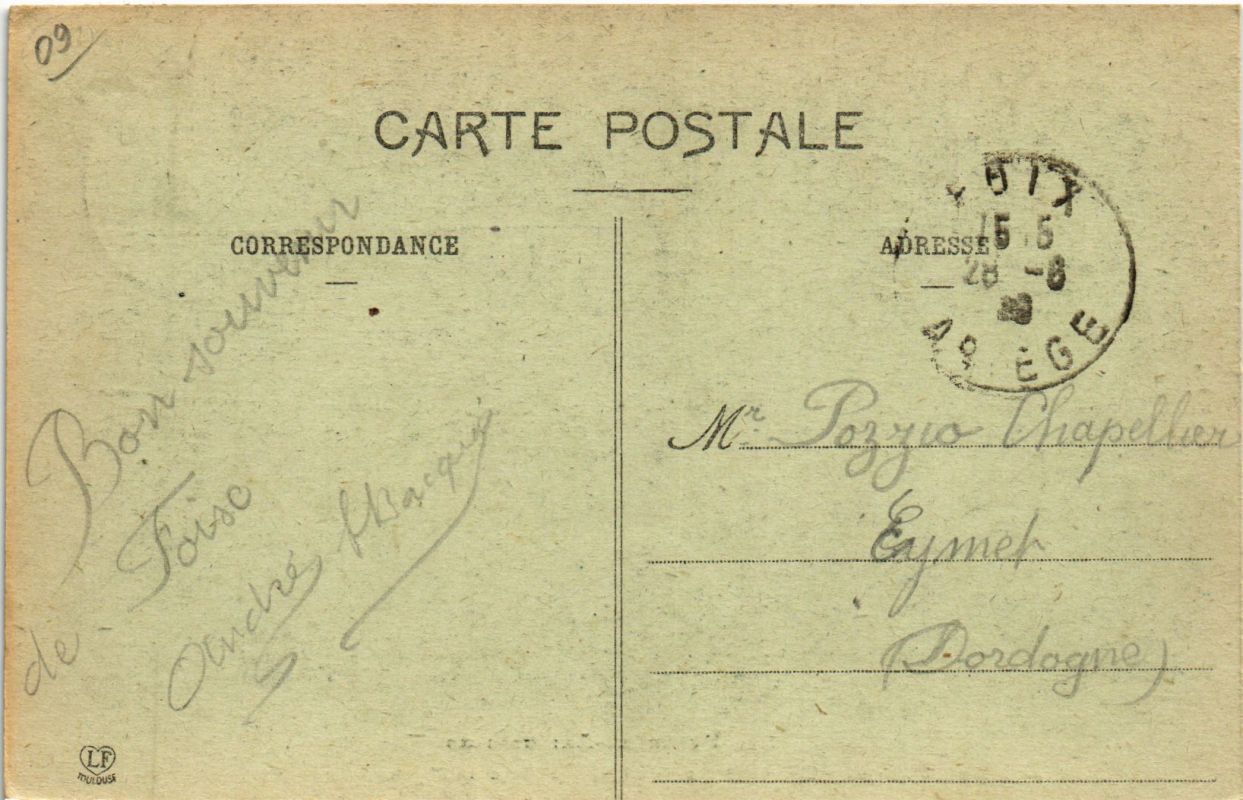 09
CARTE POSTALE
CORRESPONDANCE
ADRESSE
FOIX
28 -8
ARIEGE
Bon souvenir
de Foix
André
Mr Pozzio Chapellier
Eymet
(Dordogne)
LF
TOULOUSE